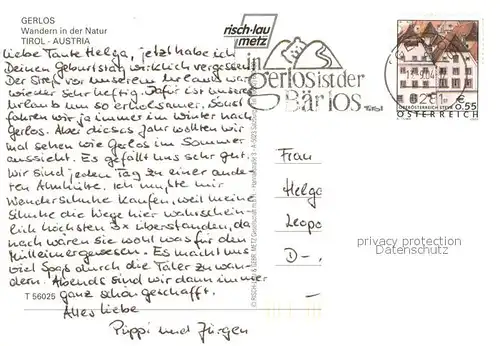 GERLOS
Wandern in der Natur
TIROL - AUSTRIA
risch-lau
metz
Liebe Tante Helga, jetzt habe ich
Deinen Geburtstag wirklich vergessen.
Der Streß vor unserem Urlaub war
wieder sehr heftig. Dafür ist unser
Urlaub um so erholsamer. Sonst
fahren wir ja immer im Winter nach
Gerlos. Aber dieses Jahr wollten wir
mal sehen wie Gerlos im Sommer
aussieht. Es gefällt uns sehr gut.
Wir sind jeden Tag zu einer ande-
ren Almhütte. Ich mußte mir
Wanderschuhe kaufen, weil meine
Schuhe die Wege hier wahrschein-
lich höchsten 3x überstanden, da
nach wären sie wohl was für den
Mülleimer gewesen. Es macht uns
viel Spaß durch die Täler zu wan-
dern. Abends sind wir dann immer
ganz schön geschafft.
Alles liebe
Püppi und Jürgen
T 56025
in
gerlos ist der
Bär los.
Tirol
6281
€ 0.55
ÖSTERREICH
Frau
Helga
Leopo
D-
privacy protection
Datenschutz